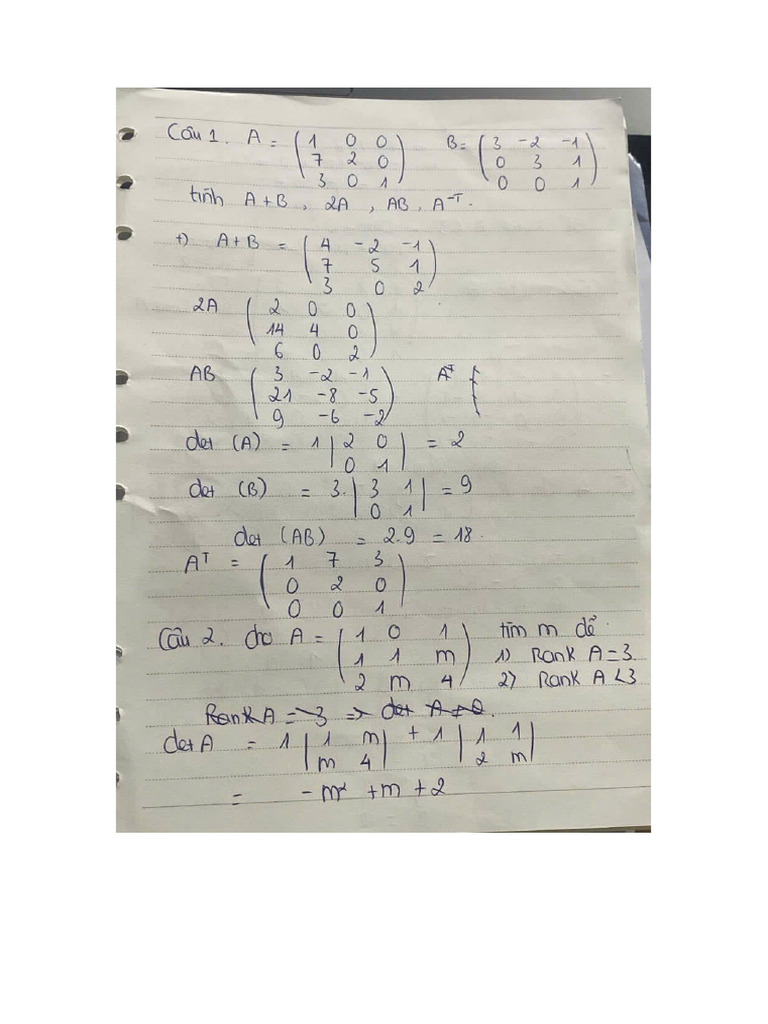 Câu 1. A = ( 1 0 0 B = ( 3 -2 -1
7 2 0 ) 0 3 1 )
3 0 1 0 0 1
tính A+B, 2A, AB, A^-T.
+) A+B = ( 4 -2 -1
7 5 1 )
3 0 2
2A ( 2 0 0
14 4 0 )
6 0 2
AB ( 3 -2 -1 A^T {
21 -8 -5 )
9 -6 -2
det (A) = 1 | 2 0 | = 2
0 1
det (B) = 3. | 3 1 | = 9
0 1
det (AB) = 2.9 = 18.
A^T = ( 1 7 3
0 2 0 )
0 0 1
Câu 2. cho A = ( 1 0 1 tìm m để
1 1 m ) 1) Rank A = 3.
2 m 4 2) Rank A < 3
Rank A = 3 => det A ≠ 0.
det A = 1 | 1 m | + 1 | 1 1 |
m 4 2 m
= -m² + m + 2